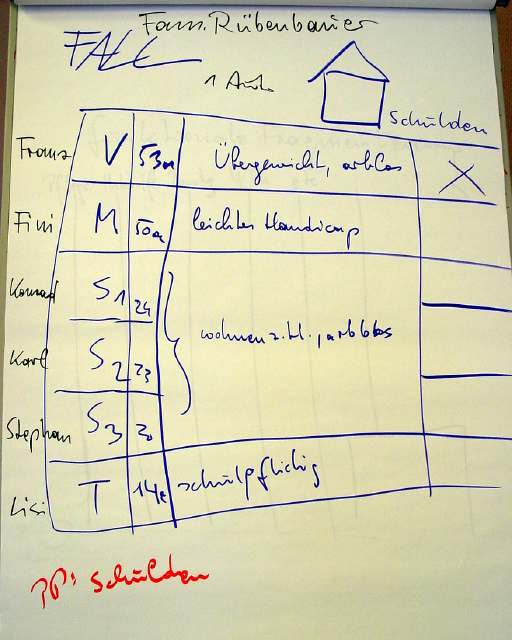 Fam. Rübenbauer
FALL
1 Auto
Schulden
Franz V 53a Übergewicht, arblos X
Fini M 50a leichtes Handicap
Konrad S1 24
wohnen z.H., arblos
Karl S2 23
Stephan S3 20
Lisi T 14a schulpflichtig
PP: Schulden